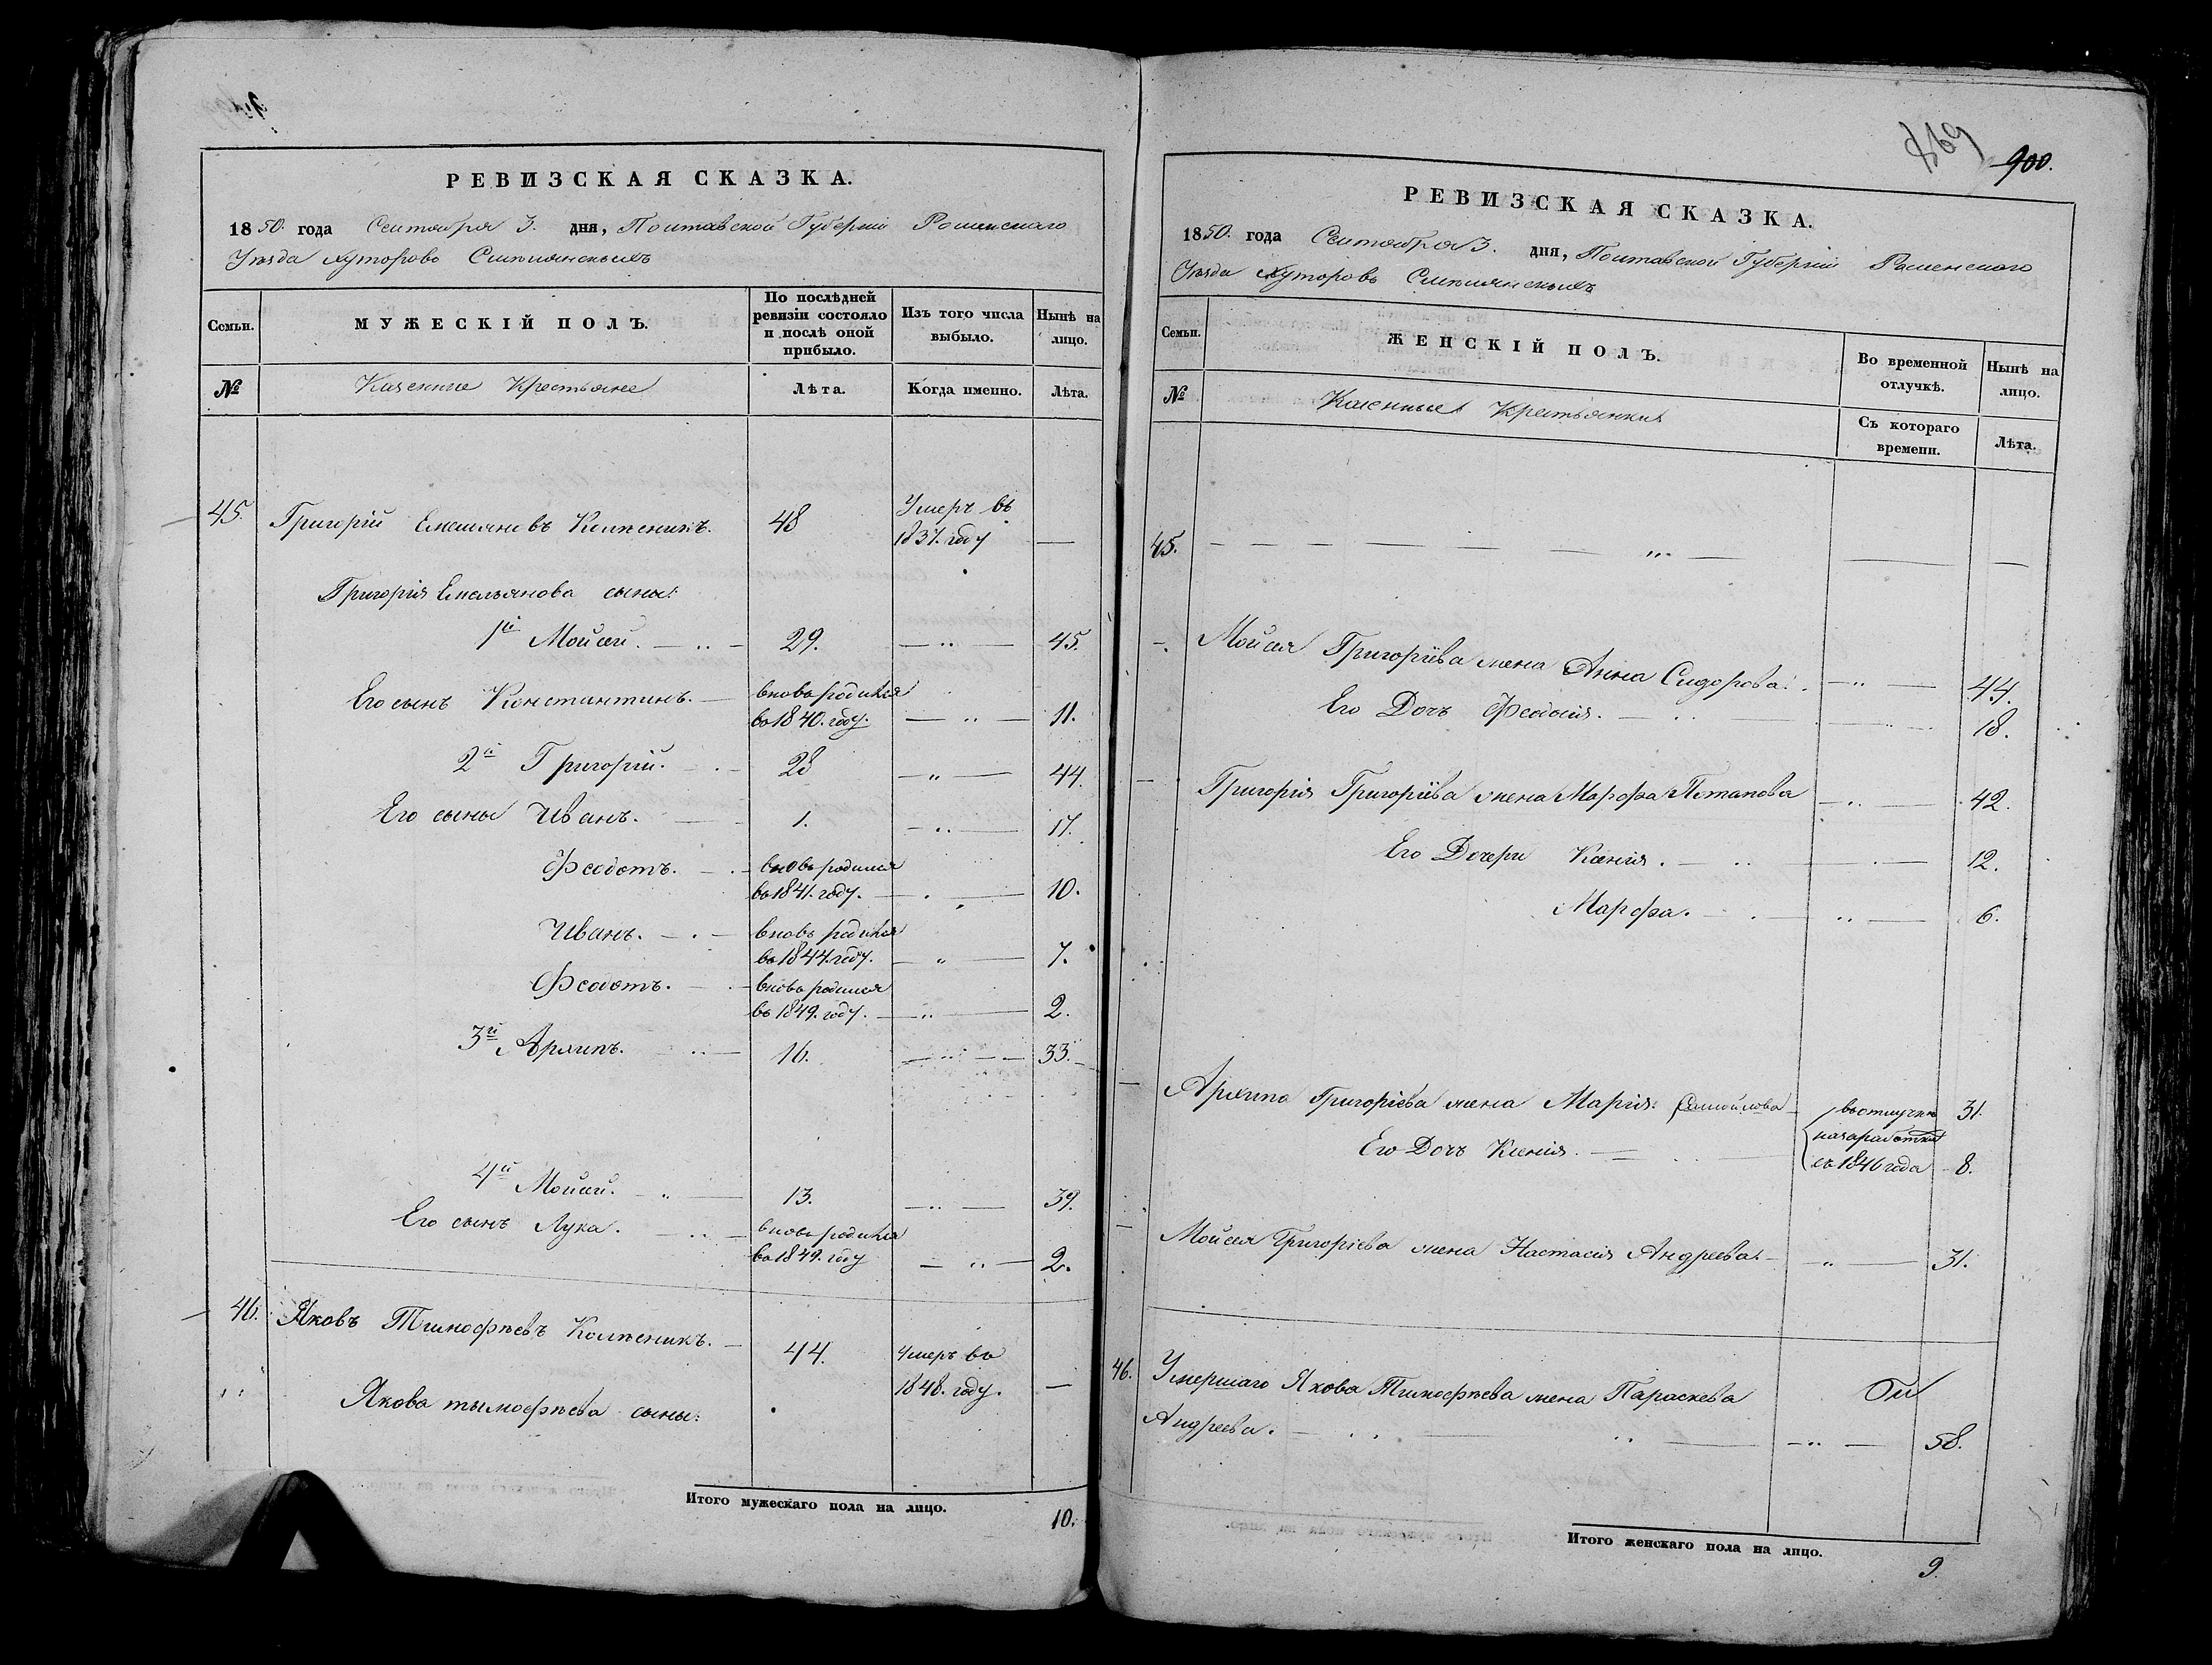 РЕВИЗСКАЯ СКАЗКА.
1850. года Сентября 3. дня, Полтавской Губерніи Роменскаго
Уѣзда Хуторовъ
Семьи.
МУЖЕСКІЙ ПОЛЪ.
По послѣдней ревизіи состояло и послѣ оной прибыло.
Изъ того числа выбыло.
Нынѣ на лицо.
№
Казенные Крестьяне
Лѣта.
Когда именно.
Лѣта.
45. Григорій Емельяновъ 48 Умеръ въ 1837. году —
Григорія Емельянова сыны:
1й Мойсей. 29. — 45.
Его сынъ Константинъ. вновь родился въ 1840. году. — 11.
2й Григорій. 28 — 44.
Его сыны Иванъ. 1. — 17.
Феодотъ. вновь родился въ 1841. году. — 10.
Иванъ. вновь родился въ 1844. году. — 7.
Феодотъ. вновь родился въ 1849. году. — 2.
3й Архипъ. 16. — 33.
4й Мойсей. 13. — 39.
Его сынъ Лука. вновь родился въ 1849. году — 2.
46. Яковъ Тимофѣевъ 44. Умеръ въ 1848. году. —
Якова Тымофѣева сыны:
Итого мужескаго пола на лицо. 10.
900.
РЕВИЗСКАЯ СКАЗКА.
1850. года Сентября 3. дня, Полтавской Губерніи Роменскаго
Уѣзда Хуторовъ
Семьи.
ЖЕНСКІЙ ПОЛЪ.
Во временной отлучкѣ.
Нынѣ на лицо.
№
Казенные Крестьянки
Съ котораго времени.
Лѣта.
45. — — —
Мойсея Григоріева жена Анна Сидорова. — 44.
Его Дочь Феодосія. — 18.
Григорія Григоріева жена Марфа Потапова — 42.
Его Дочери Ксенія. — 12.
Марфа. — 6.
Архипа Григоріева жена Марія Самойлова въ отлучкѣ 31.
на заработки
Его Дочь Ксенія. съ 1846 года 8.
Мойсея Григоріева жена Настасія Андреева. — 31.
46. Умершаго Якова Тимофѣева жена Параскева
Андреева. — 58.
Итого женскаго пола на лицо. 9.